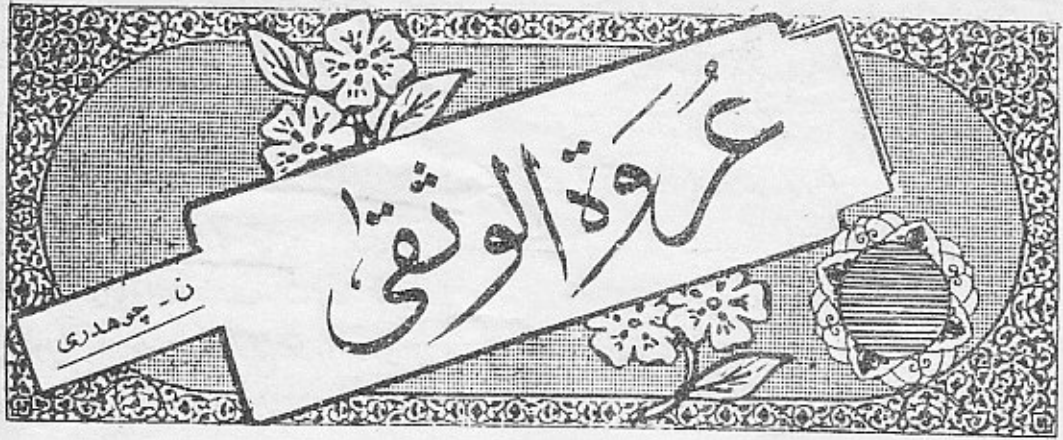 عُروَۃ الوثقیٰ
ن - چوھدری